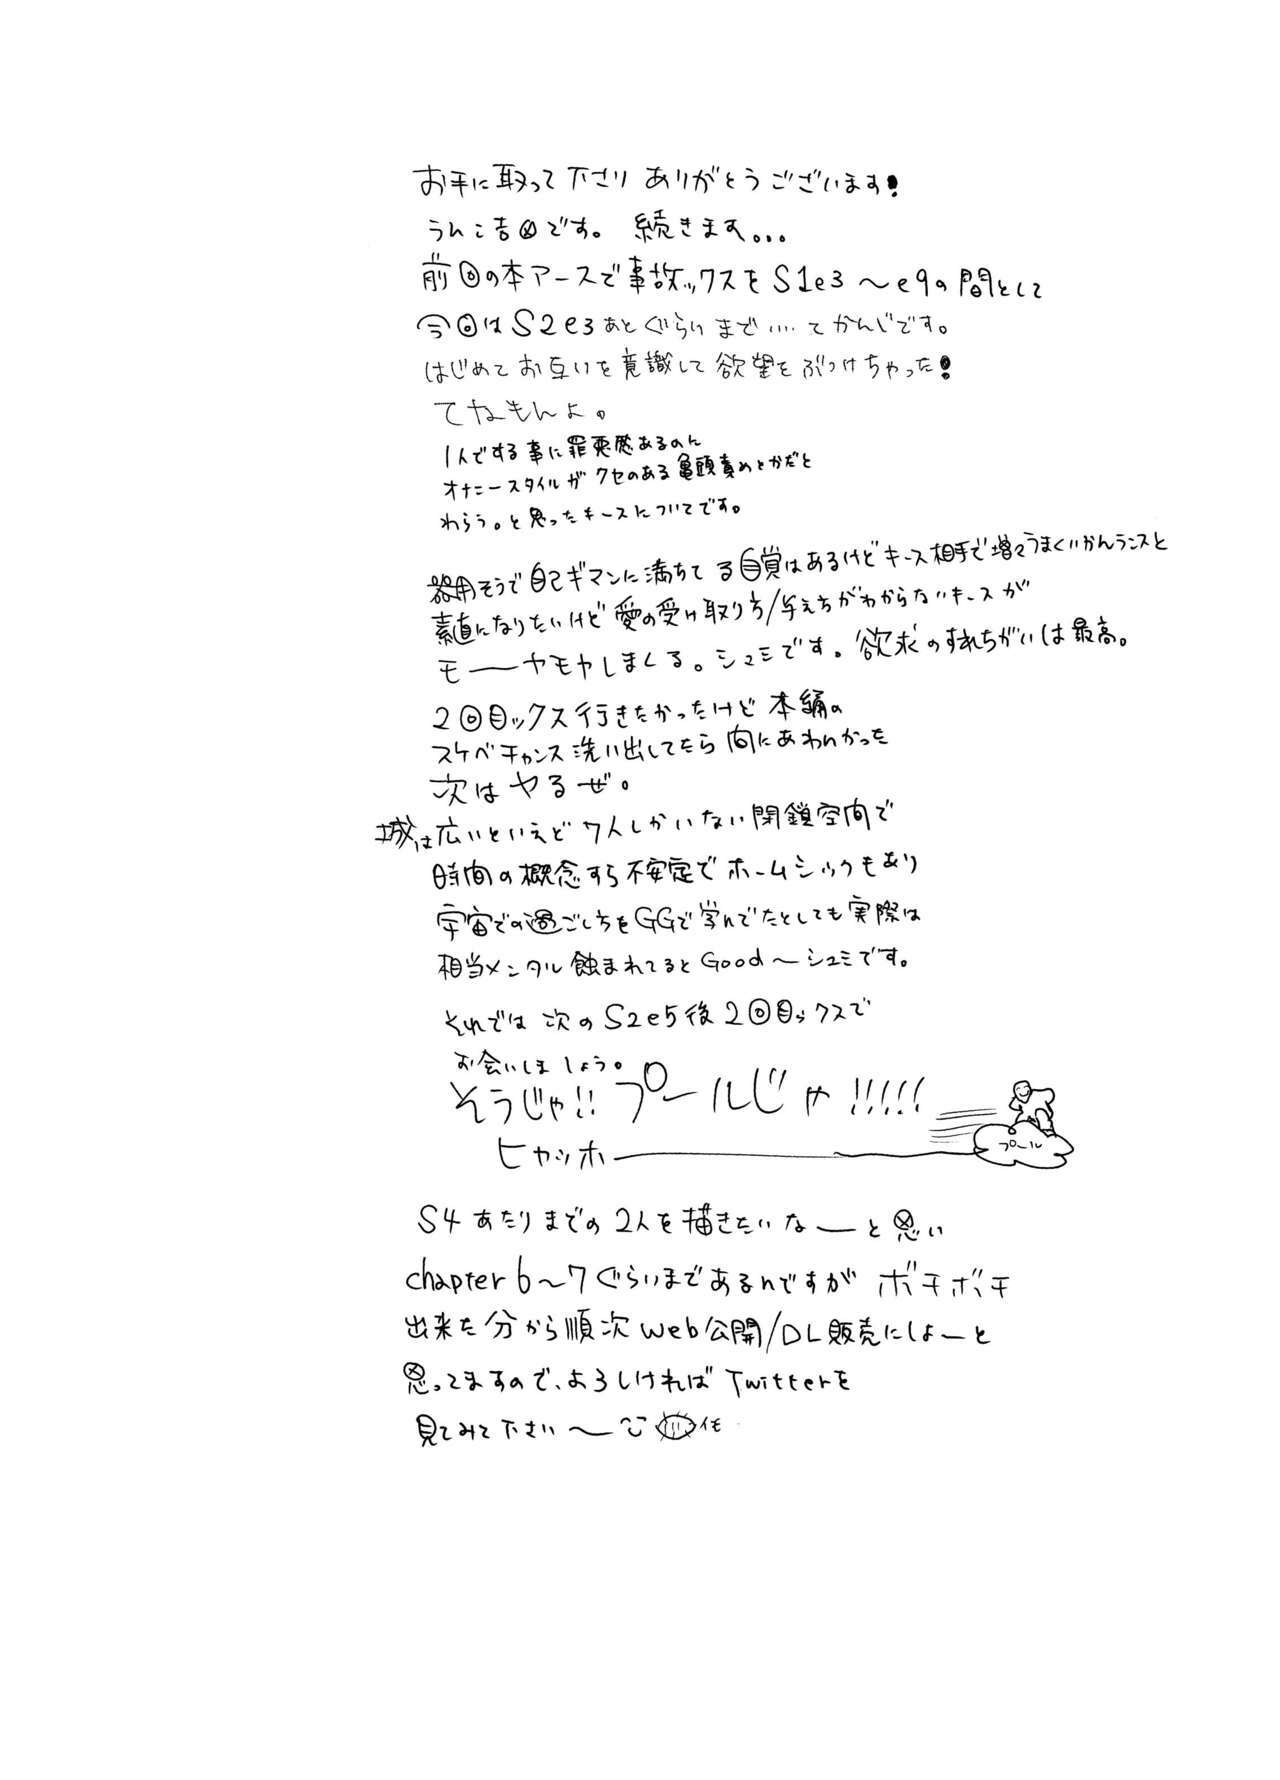 お手に取って下さり ありがとうございます!
うんこ吉田です。 続きます...
前回の本アースで事故ックスを S1e3 〜e9の間として
今回は S2e3あとぐらいまで....てかんじです。
はじめてお互いを意識して欲望をぶつけちゃった!
てなもんよ。
1人でする事に罪悪感あるのん
オナニースタイルが クセのある亀頭責めとかだと
わらう。と思ったキースについてです。
器用そうで自己ギマンに満ちてる自覚はあるけどキース相手で増々うまくいかんランスと
素直になりたいけど愛の受け取り方/与え方がわからないキースが
モーヤモヤしまくる。シュミです。欲求のすれちがいは最高。
2回目ックス行きたかったけど本編の
スケベチャンス洗い出してたら間にあわんかった
次はヤるぜ。
城は広いといえど7人しかいない閉鎖空間で
時間の概念すら不安定でホームシックもあり
宇宙での過ごし方をGGで学んでたとしても実際は
相当メンタル蝕まれてるとGood〜シュミです。
それでは次のS2e5後2回目ックスで
お会いしましょう。
そうじゃ!! プールじゃ!!!!!
ヒャッホー
プール
S4あたりまでの2人を描きたいなーと思い
chapter6〜7ぐらいまであるんですがボチボチ
出来た分から順次web公開/DL販売にしよーと
思ってますので、よろしければTwitterを
見てみて下さい〜